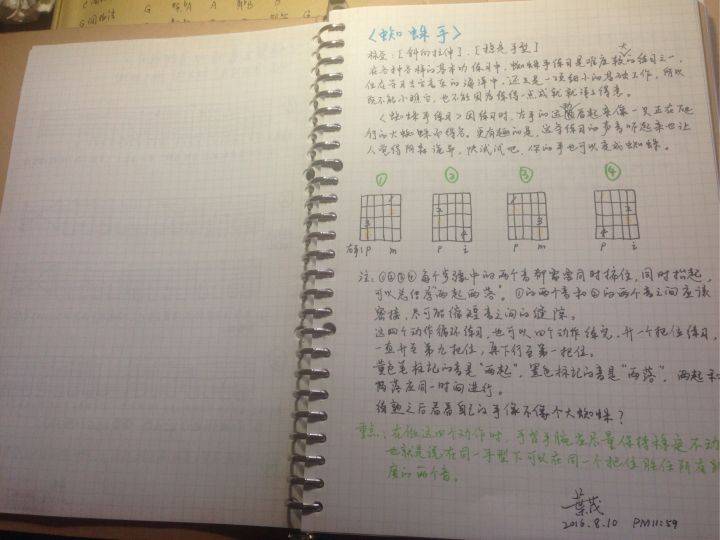 G
A
G
《蜘蛛手》
标签:[斜向拉伸],[稳定手型]
在各种各样的基本功练习中,蜘蛛手练习是难度较大的练习之一,
但在学习吉他音乐的海洋中,还只是一项细小的基础工作,所以
既不能小瞧它,也不能因为练得一点成就就得意。
《蜘蛛手练习》因练习时,左手的运指看起来像一只正在爬
行的大蜘蛛而得名。更有趣的是,这条练习的声音听起来也让
人觉得阴森诡异,快试试吧,你的手也可以变成蜘蛛。
① ② ③ ④
1 3 2 4 1 3 2 4
右手:p m p i p m p i
注:①②③④每个步骤中的两个音都需要同时按住,同时抬起,
可以总结为“两起两落”。①的两个音和②的两个音之间应该
密接,尽可能缩短音之间的缝隙。
这四个动作循环练习,也可以四个动作练完,升一个把位练习,
一直升至第九把位,再下行至第一把位。
黄色笔标记的音是“两起”,黑色标记的音是“两落”,两起和
两落应同一时间进行。
练熟之后看看自己的手像不像个大蜘蛛?
重点:在做这四个动作时,手臂手腕应尽量保持稳定不动
也就是说在同一手型下可以在同一个把位胜任所有
度的两个音。
葉茂
2016.8.10 PM11:59